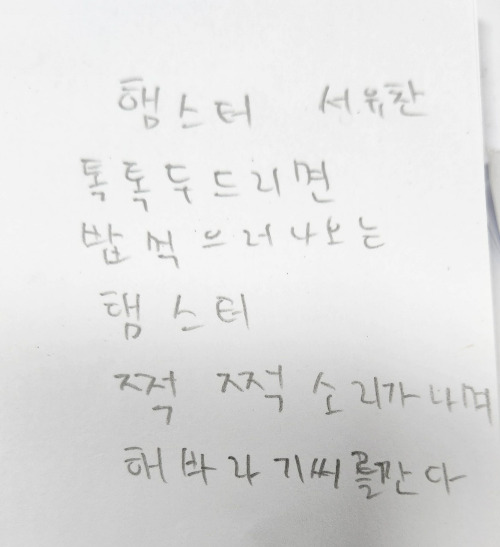 햄스터 서유찬
톡톡두드리면
밥먹으러나오는
햄스터
쩍 쩍 소리가나며
해바라기씨를깐다